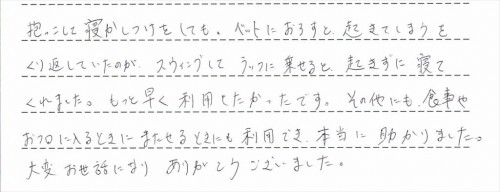 抱っこして寝かしつけをしても、ベットにおろすと、起きてしまうを
くり返していたのが、スウィングして ラックに乗せると、起きずに寝て
くれました。もっと早く利用したかったです。その他にも、食事や
お風呂に入るときに またせるときにも利用でき、本当に助かりました。
大変お世話になり ありがとうございました。